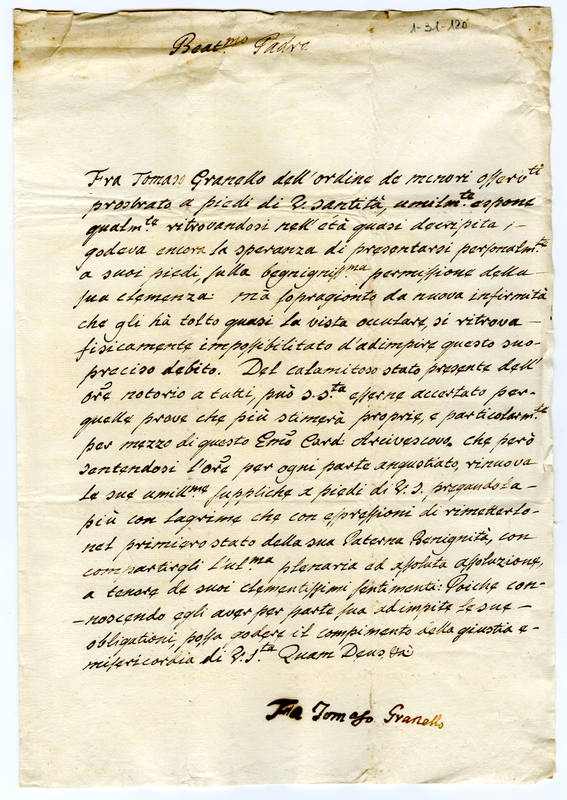 1-31-120
Beat.mo Padre
Fra Tomaso Granello dell'ordine de menori osserv.ti
prostrato a piedi di V. Santità, umilm.te espone
qualm.te ritrovandosi nell'età quasi decripita, -
godeva encora la speranza di presentarsi personalm.te
a suoi piedi, sulla begnigniss.ma permissione della
sua clemenza mà sopragionto da nuova infirmità
che gli hà tolto quasi la vista occulare, si ritrova -
fisicamente impossibilitato d'adimpire questo suo
preciso debito. Del calamitoso stato presente dell'
ore notorio a tutti, può S. S.tà esserne accertato per-
quelle prove che più stimerà proprie, e particolarm.te
per mezzo di questo Emo Card Arcivescovo, che però
sentendosi l'Ore per ogni parte angustiato, rinuova
le sue umill.me suppliche a piedi di V. S. pregandola-
più con lagrime che con espressioni di rimetterlo-
nel primiero stato della sua Paterna Benignità, con
compartirgli l'ul.ma plenaria ed assoluta assoluzione,
a tenore de suoi clementissimi sentimenti: Poiche con-
-noscendo egli aver per parte sua adimpite le sue -
obligationi, possa godere il compimento della giustia e-
misericordia di V. S.tà Quam Deus &a
Fra Tomaso Granello